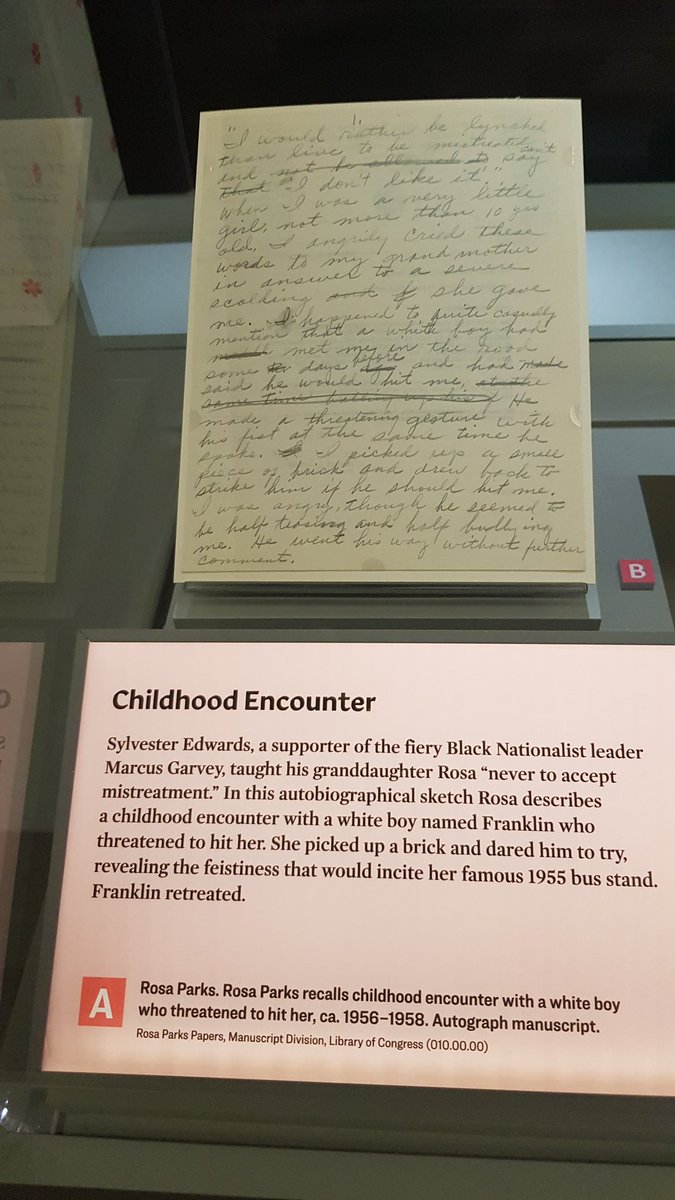 "I would rather be lynched
than live to be mistreated
and not be allowed to can't say
that "I don't like it"."
When I was a very little
girl, not more than 10 yrs
old, I angrily cried these
words to my grandmother
in answer to a severe
scolding and she gave
me. I happened to quite casually
mention that a white boy had
met me in the road
some days before and had made
said he would hit me,
same time balling up his He
made a threatening gesture with
his fist at the same time he
spoke. I picked up a small
piece of brick and drew back to
strike him if he should hit me.
I was angry, though he seemed to
be half teasing and half budly ing
me. He went his way without further
comment.
B
Childhood Encounter
Sylvester Edwards, a supporter of the fiery Black Nationalist leader
Marcus Garvey, taught his granddaughter Rosa “never to accept
mistreatment.” In this autobiographical sketch Rosa describes
a childhood encounter with a white boy named Franklin who
threatened to hit her. She picked up a brick and dared him to try,
revealing the feistiness that would incite her famous 1955 bus stand.
Franklin retreated.
A
Rosa Parks. Rosa Parks recalls childhood encounter with a white boy
who threatened to hit her, ca. 1956–1958. Autograph manuscript.
Rosa Parks Papers, Manuscript Division, Library of Congress (010.00.00)